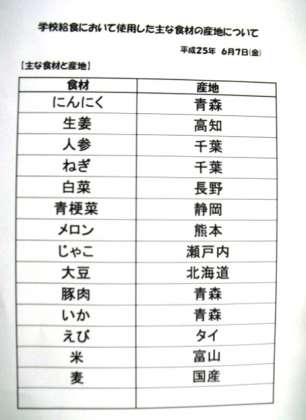 学校給食において使用した主な食材の産地について
平成25年 6月7日(金)
【主な食材と産地】
食材 産地
にんにく 青森
生姜 高知
人参 千葉
ねぎ 千葉
白菜 長野
青梗菜 静岡
メロン 熊本
じゃこ 瀬戸内
大豆 北海道
豚肉 青森
いか 青森
えび タイ
米 富山
麦 国産